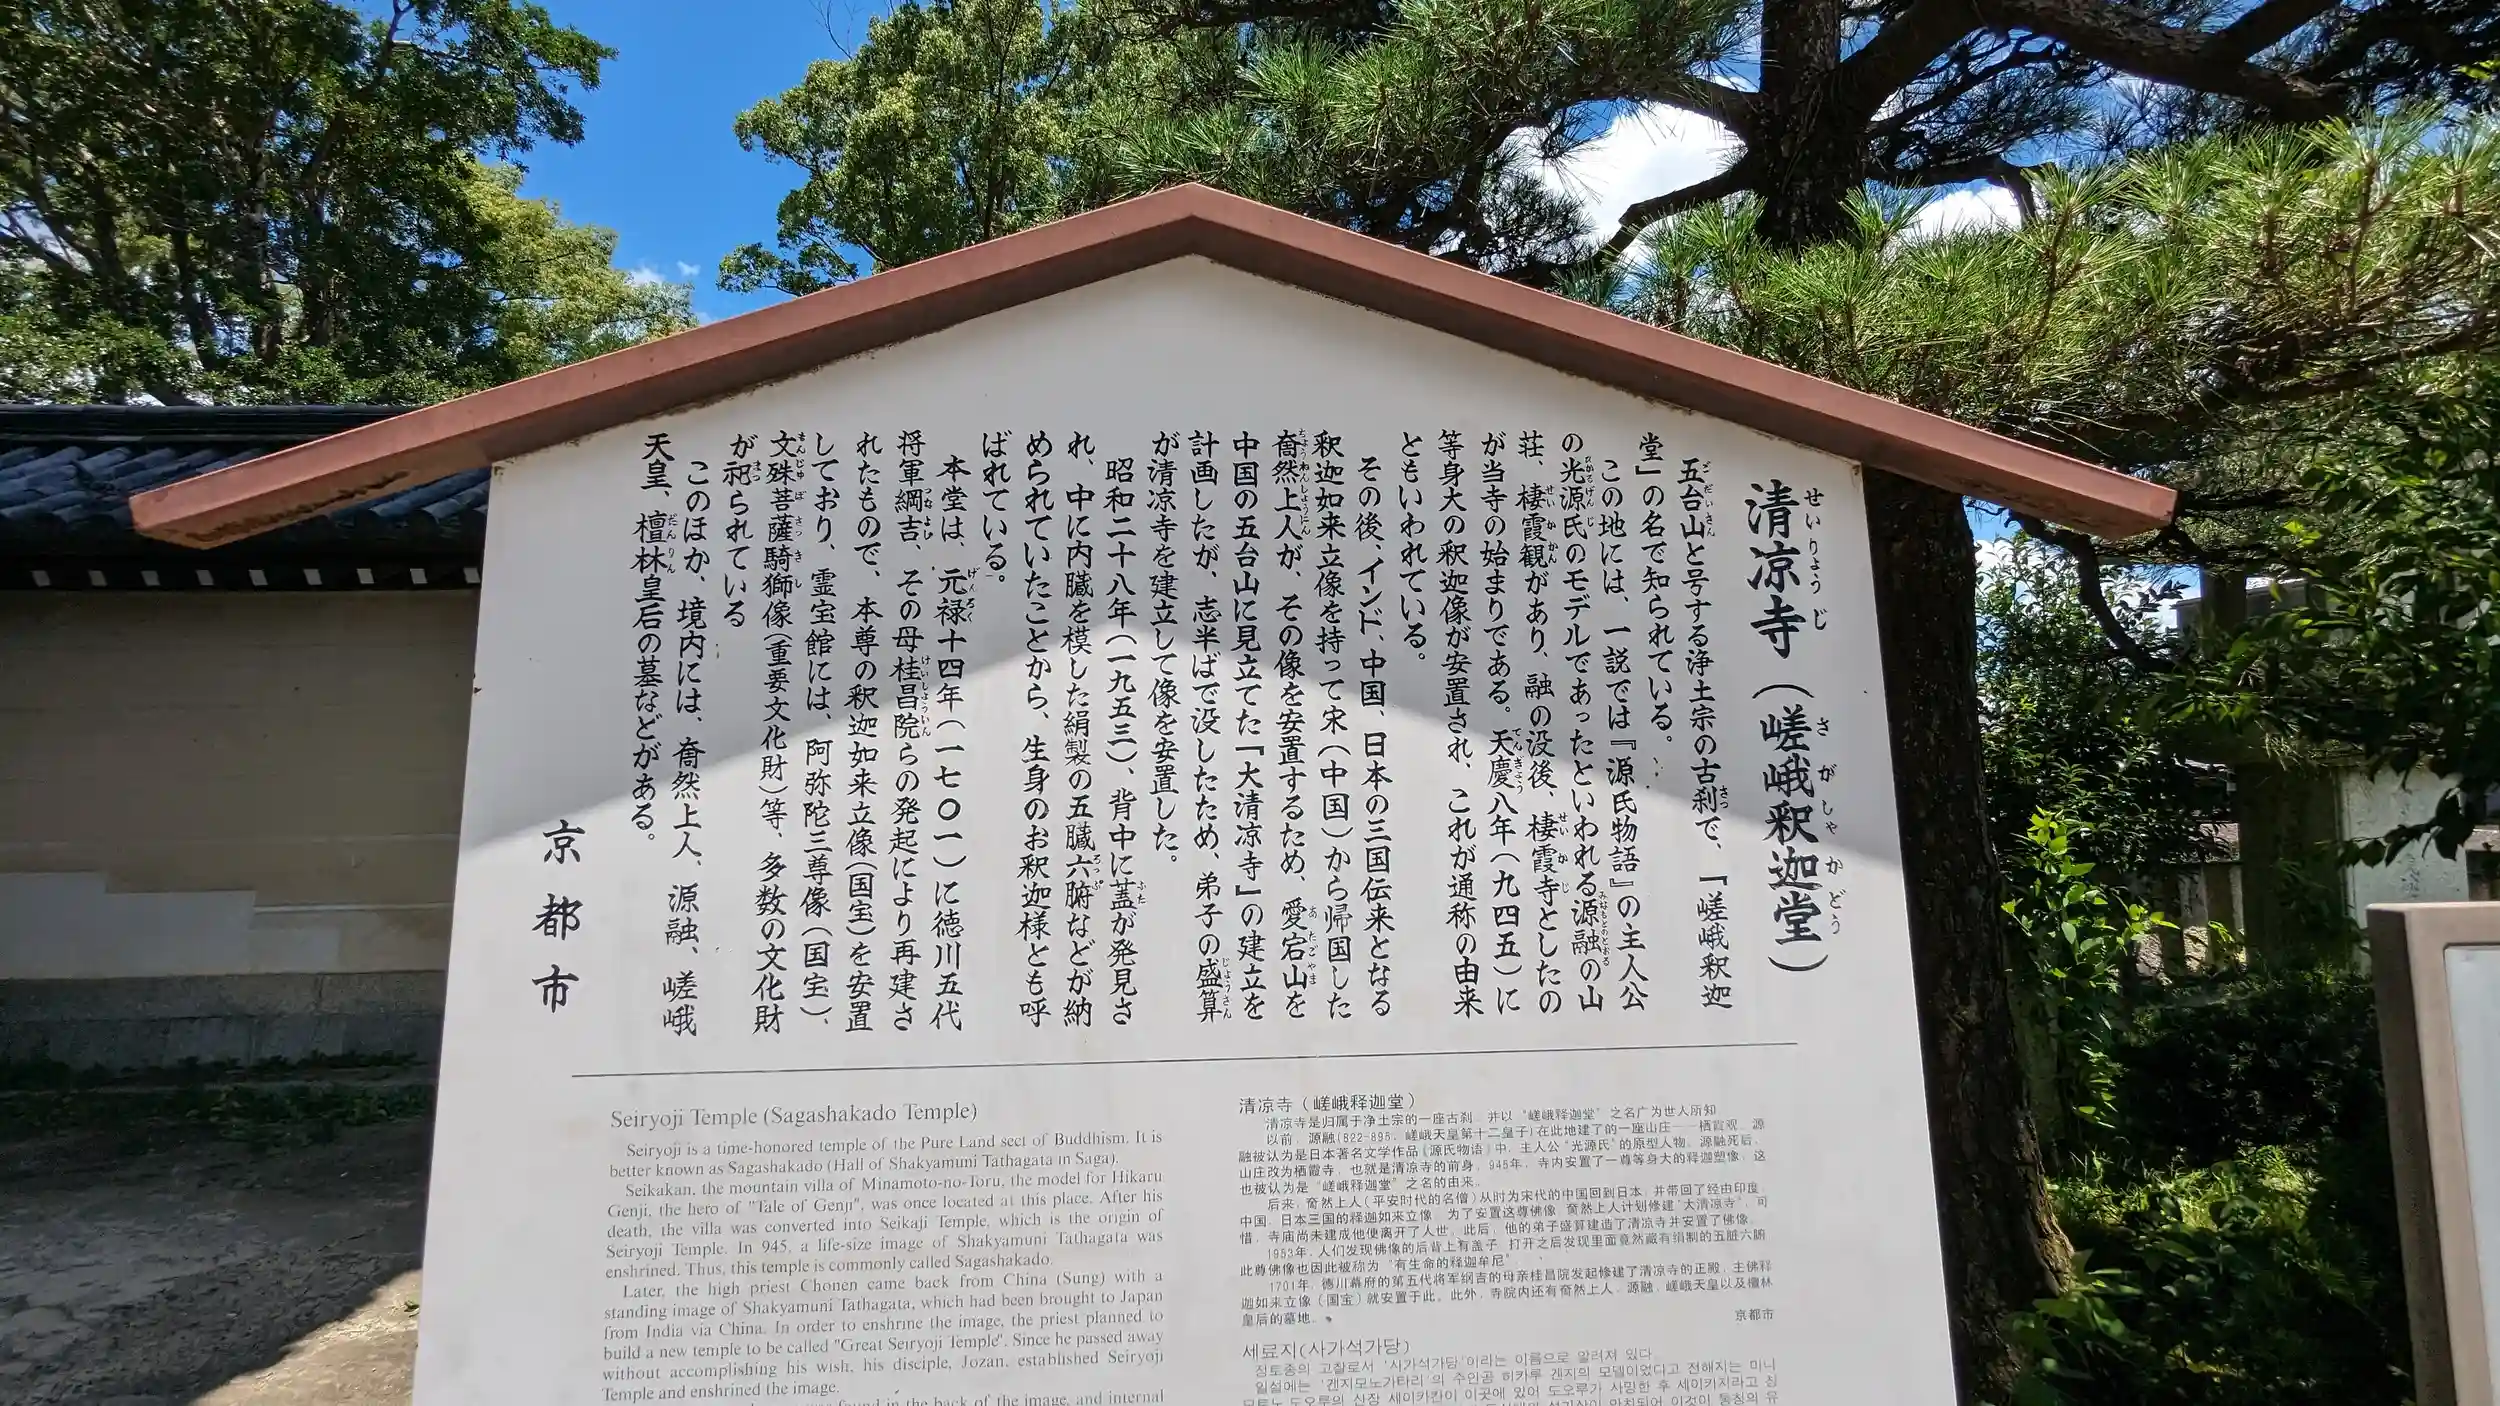 清凉寺（嵯峨釈迦堂）
せいりょうじ さがしゃかどう
五台山と号する浄土宗の古刹で、「嵯峨釈迦
堂」の名で知られている。
この地には、一説では『源氏物語』の主人公
の光源氏のモデルであったといわれる源融の山
荘、棲霞観があり、融の没後、棲霞寺としたの
が当寺の始まりである。天慶八年（九四五）に
等身大の釈迦像が安置され、これが通称の由来
ともいわれている。
その後、インド、中国、日本の三国伝来となる
釈迦如来立像を持って宋（中国）から帰国した
奝然上人が、その像を安置するため、愛宕山を
中国の五台山に見立てた「大清凉寺」の建立を
計画したが、志半ばで没したため、弟子の盛算
が清凉寺を建立して像を安置した。
昭和二十八年（一九五三）、背中に蓋が発見さ
れ、中に内臓を模した絹製の五臓六腑などが納
められていたことから、生身のお釈迦様とも呼
ばれている。
本堂は、元禄十四年（一七〇一）に徳川五代
将軍綱吉、その母桂昌院らの発起により再建さ
れたもので、本尊の釈迦如来立像（国宝）を安置
しており、霊宝館には、阿弥陀三尊像（国宝）、
文殊菩薩騎獅像（重要文化財）等、多数の文化財
が祀られている
このほか、境内には、奝然上人、源融、嵯峨
天皇、檀林皇后の墓などがある。
京都市
Seiryoji Temple (Sagashakado Temple)
Seiryoji is a time-honored temple of the Pure Land sect of Buddhism. It is
better known as Sagashakado (Hall of Shakyamuni Tathagata in Saga).
Seikakan, the mountain villa of Minamoto-no-Toru, the model for Hikaru
Genji, the hero of "Tale of Genji", was once located at this place. After his
death, the villa was converted into Seikaji Temple, which is the origin of
Seiryoji Temple. In 945, a life-size image of Shakyamuni Tathagata was
enshrined. Thus, this temple is commonly called Sagashakado.
Later, the high priest Chonen came back from China (Sung) with a
standing image of Shakyamuni Tathagata, which had been brought to Japan
from India via China. In order to enshrine the image, the priest planned to
build a new temple to be called "Great Seiryoji Temple". Since he passed away
without accomplishing his wish, his disciple, Jozan, established Seiryoji
Temple and enshrined the image.
found in the back of the image, and internal
清凉寺（嵯峨释迦堂）
清凉寺是归属于净土宗的一座古刹，并以“嵯峨释迦堂”之名广为世人所知
以前，源融(822-895，嵯峨天皇第十二皇子)在此地建了的一座山庄——栖霞观，源
融被认为是日本著名文学作品《源氏物语》中，主人公“光源氏”的原型人物，源融死后，
山庄改为栖霞寺，也就是清凉寺的前身，945年，寺内安置了一尊等身大的释迦塑像，这
也被认为是“嵯峨释迦堂”之名的由来。
后来，奝然上人(平安时代的名僧)从时为宋代的中国回到日本，并带回了经由印度，
中国，日本三国的释迦如来立像，为了安置这尊佛像，奝然上人计划修建“大清凉寺”，可
惜，寺庙尚未建成他便离开了人世，此后，他的弟子盛算建造了清凉寺并安置了佛像。
1953年，人们发现佛像的后背上有盖子，打开之后发现里面竟然藏有绢制的五脏六腑
此尊佛像也因此被称为“有生命的释迦牟尼”
1701年，德川幕府的第五代将军纲吉的母亲桂昌院发起修建了清凉寺的正殿，主佛释
迦如来立像（国宝）就安置于此。此外，寺院内还有奝然上人，源融，嵯峨天皇以及檀林
皇后的墓地。
京都市
세료지(사가석가당)
정토종의 고찰로서 '사가석가당'이라는 이름으로 알려져 있다.
일설에는 '겐지모노가타리'의 주인공 히카루 겐지의 모델이었다고 전해지는 미나
모토노 도오루의 산장 세이카칸이 이곳에 있어 도오루가 사망한 후 세이카지라고 칭